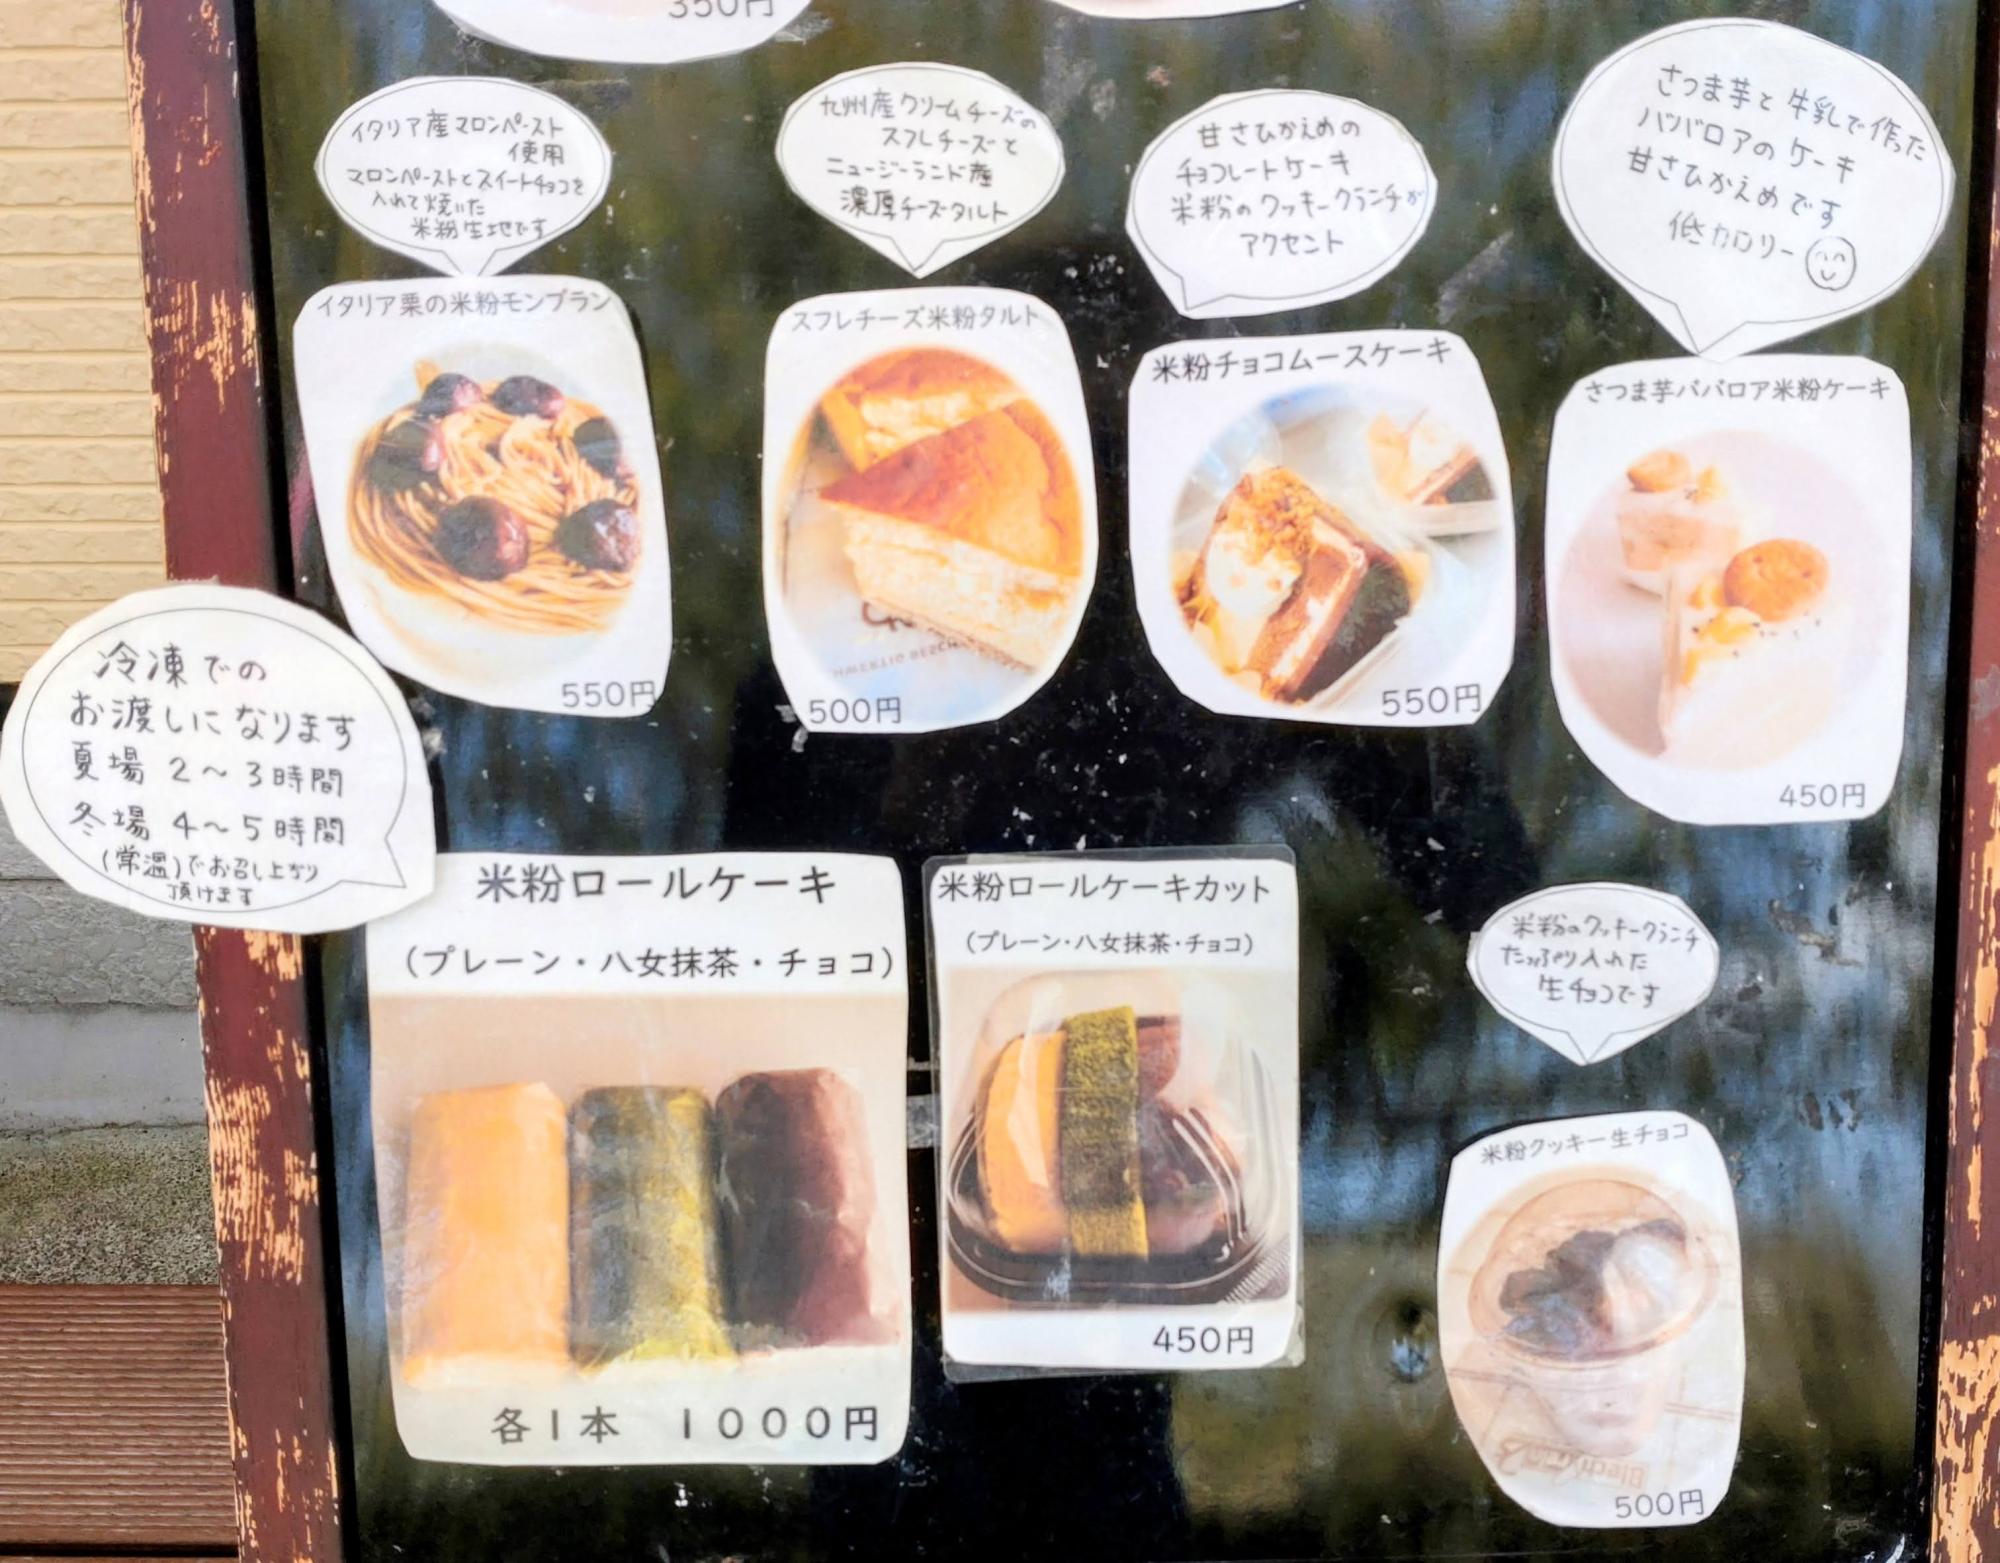 350円
イタリア産マロンペースト
使用
マロンペーストとスイートチョコを
入れて焼いた
米粉生地です
イタリア栗の米粉モンブラン
550円
九州産クリームチーズの
スフレチーズと
ニュージーランド産
濃厚チーズタルト
スフレチーズ米粉タルト
500円
甘さひかえめの
チョコレートケーキ
米粉のクッキークランチが
アクセント
米粉チョコムースケーキ
550円
さつま芋と牛乳で作った
ババロアのケーキ
甘さひかえめです
低カロリー
さつま芋ババロア米粉ケーキ
450円
冷凍での
お渡しになります
夏場 2～3時間
冬場 4～5時間
(常温)でお召し上がり
頂けます
米粉ロールケーキ
(プレーン・八女抹茶・チョコ)
各1本 1000円
米粉ロールケーキカット
(プレーン・八女抹茶・チョコ)
450円
米粉のクッキークランチ
たっぷり入れた
生チョコです
米粉クッキー生チョコ
500円